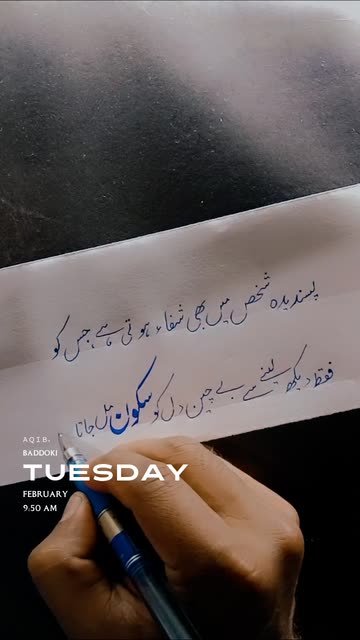 پسندیدہ شخص میں بھی شفاء ہوتی ہے جس کو
فقط دیکھ لینے سے بے چین دل کو سکون مل جاتا
AQIB.
BADDOKI
TUESDAY
FEBRUARY
9.50 AM